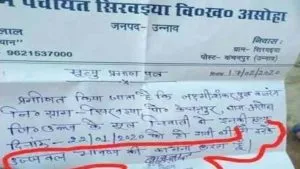 म पंचायत सिरवइया वि०ख० असोहा
जनपद- उन्नाव
लाल
निवास :
ग्राम- सिरवइया
पोस्ट- कंचनपुर
(उन्नाव)
9621537000
मृत्यु प्रमाण पत्र
प्रमाणित किया जाता है कि लक्ष्मीशंकर पुत्र
ग्राम सिरवइया पो० कंचनपुर थाना असोहा
के मूल निवासी थे इनकी मृत्यु
दिनांक- 22/01/2020 को हो गयी थी मैं इनके
उज्जवल भविष्य की कामना करता हूँ।